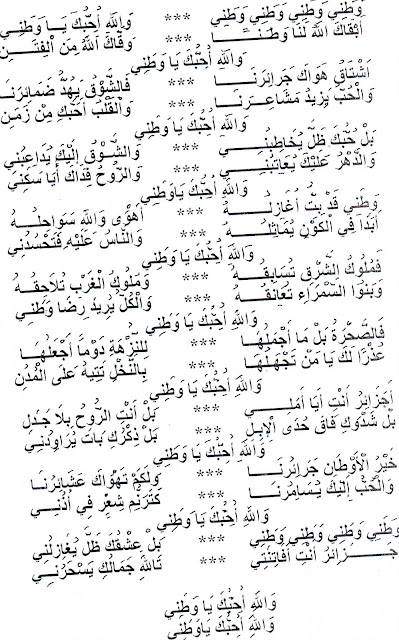 وَطَنِي وَطَنِي وَطَنِي وَطَنِي *** وَاللهِ أُحُبُّكَ يَا وَطَنِي
أَبْقَاكَ اللهُ لَنَا وَطَنَـــا *** وَقَاكَ اللهُ مِنَ الْفِتَـــنِ
وَاللهِ أُحُبُّكَ يَا وَطَنِي
أَشْتَاقُ هَوَاكَ جَرَائِرَنَـــا *** فَالشَّوْقُ يَهُدُّ ضَمَائِرَنَـا
وَالْحُبُّ يَزِيدُ مَشَاعِـرَنَـا *** وَالْقَلْبُ أَحَبَّكِ مِنْ زَمَـنِ
وَاللهِ أُحُبُّكَ يَا وَطَنِي
بَلْ حُبُّكَ ظَلَّ يُخَاطِبُنِـــي *** وَالشَّوْقُ إِلَيْكَ يُدَاعِبُنِي
وَالدَّهْرُ عَلَيْكَ يُعَاتِبُنِـــي *** وَالرُّوحُ فِدَاكَ أَيَا سَكَنِي
وَاللهِ أُحُبُّكَ يَاوَطَنِي
وَطَنِي قَدْ بِتُّ أُغَازِلُـــهُ *** أَهْوَى وَاللهِ سَوَاحِلُـــهُ
أَبَدًا فِي الْكَوْنِ يُمَاثِلُـــهُ *** وَالنَّاسُ عَلَيْهِ فَتَحْسُدُنِي
وَاللهِ أُحُبُّكَ يَا وَطَنِي
فَمُلُوكُ الشَّرْقِ تُسَابِقُـــهُ *** وَمُلُوكُ الْغَرْبِ تُلَاحِقُـــهُ
وَبَنُوا السَّمْرَاءِ تُعَانِقُـــهُ *** وَالْكُلُّ يُرِيدُ رِضَا وَطَنِي
وَاللهِ أُحُبُّكَ يَا وَطَنِي
فَالصَّخْرَةُ بَلْ مَا أَجْمَلَهَـا *** لِلنُّزْهَةِ دَوْماً أَجْعَلُهَـا
عُذْرًا لَكَ يَا مَنْ تَجْهَلُهَـا *** بِالنَّخْلِ تَتِيهُ عَلَى الْمُدُنِ
وَاللهِ أُحُبُّكَ يَا وَطَنِي
أَجَزَائِرُ أَنْتِ أَيَا أَمَلـــي *** بَلْ أَنْتِ الرُّوحُ بِلَا جَدَلِ
بَلْ شَدْوُكِ فَاقَ حُدَى الْإِبِـلِ *** بَلْ ذِكْرُكِ بَاتَ يُرَاوِدُنِـي
وَاللهِ أُحُبُّكَ يَا وَطَنِي
خَيْرُ الْأَوْطَانِ جَرَائِرُنَـــا *** وَلَكَمْ تَهْوَاكَ عَشَائِرُنَـا
وَالْحُبُّ إِلَيْكَ يُسَامِرُنَـــا *** كَتَرْنِيمِ شِعْرٍ فِي أُذُنِـــي
وَاللهِ أُحُبُّكَ يَا وَطَنِي
وَطَنِي وَطَنِي وَطَنِي وَطَنِي *** بَلْ عِشْقُكَ ظَلَّ يُغَازِلُنِي
جَـــزَائِرُ أَنْتِ أَفَاتِنَتِي *** تَاللهِ جَمَالُكِ يَسْحَرُنِـــي
وَاللهِ أُحُبُّكَ يَا وَطَنِي
وَاللهِ أُحُبُّكَ يَاوَطَنِي